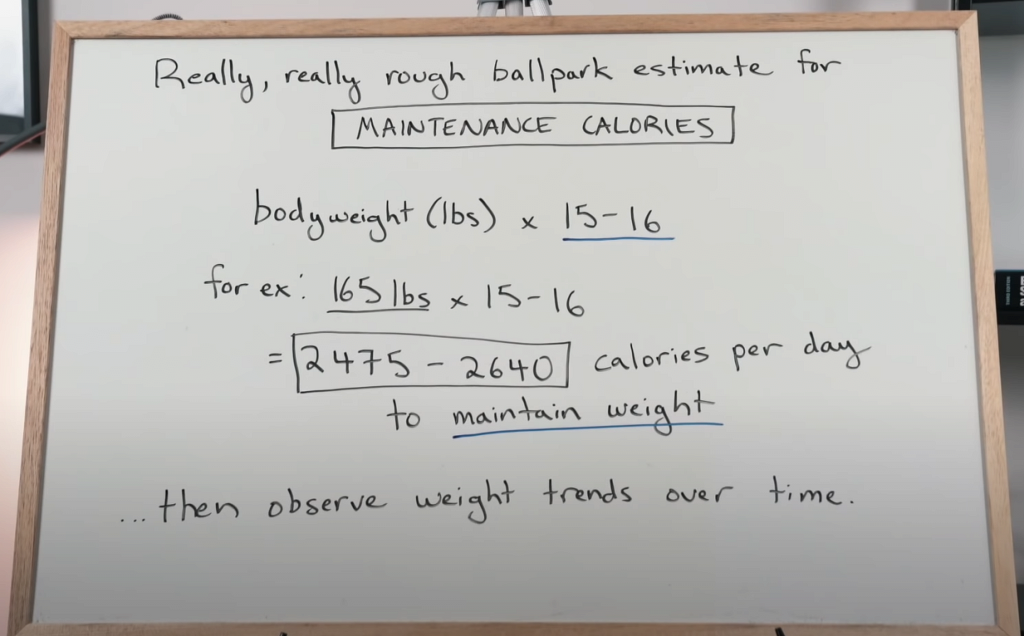 Really, really rough ballpark estimate for
MAINTENANCE CALORIES
bodyweight (lbs) x 15-16
for ex: 165 lbs x 15-16
= 2475 - 2640 calories per day
to maintain weight
...then observe weight trends over time.